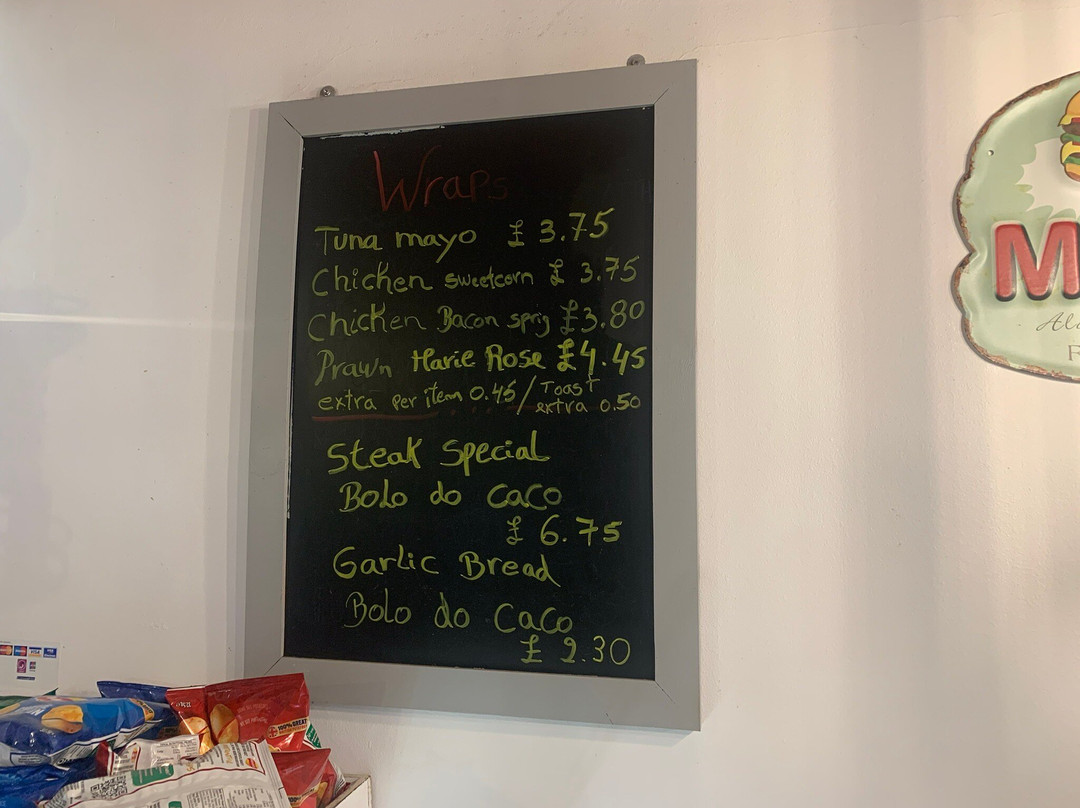 Wraps
Tuna mayo £ 3.75
Chicken sweetcorn £ 3.75
Chicken Bacon sprig £3.80
Prawn Marie Rose £4.45
extra per item 0.45/Toast extra 0.50
Steak Special
Bolo do caco
£ 6.75
Garlic Bread
Bolo do caco
£ 2.30
M
100% GREAT